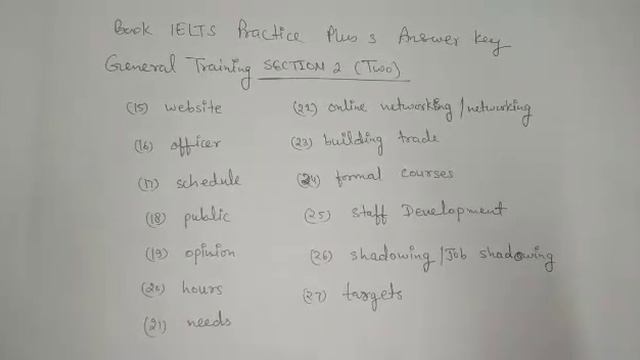 Book IELTS Practice Plus 3 Answer Key
General Training SECTION 2 (Two)
(15) website
(16) officer
(17) schedule
(18) public
(19) opinion
(20) hours
(21) needs
(22) online networking / networking
(23) building trade
(24) formal courses
(25) staff Development
(26) shadowing / Job shadowing
(27) targets